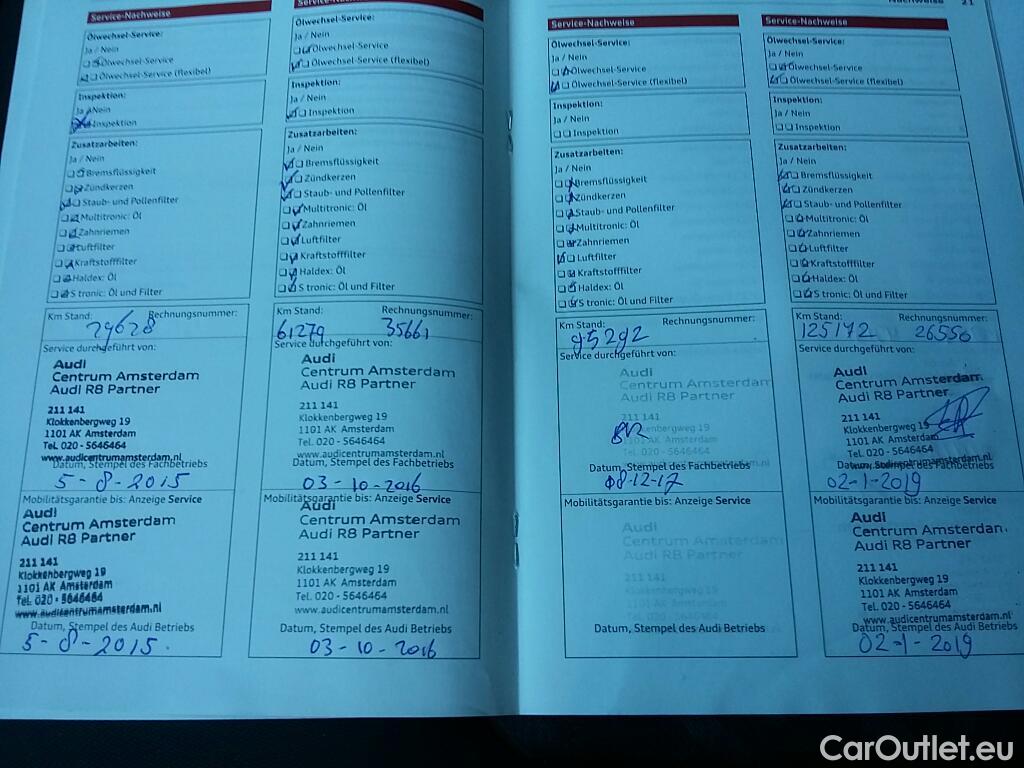 Service-Nachweise
Ölwechsel-Service:
Ja / Nein
Ölwechsel-Service
Ölwechsel-Service (flexibel)
Inspektion:
Ja / Nein
Inspektion
Zusatzarbeiten:
Ja / Nein
Bremsflüssigkeit
Zündkerzen
Staub- und Pollenfilter
Multitronic: Öl
Zahnriemen
Luftfilter
Kraftstofffilter
Haldex: Öl
S tronic: Öl und Filter
Km Stand: Rechnungsnummer:
29628
Service durchgeführt von:
Audi
Centrum Amsterdam
Audi R8 Partner
211 141
Klokkenbergweg 19
1101 AK Amsterdam
Tel. 020 - 5646464
www.audicentrumamsterdam.nl
Datum, Stempel des Fachbetriebs
5-8-2015
Mobilitätsgarantie bis: Anzeige Service
Audi
Centrum Amsterdam
Audi R8 Partner
211 141
Klokkenbergweg 19
1101 AK Amsterdam
Tel. 020 - 5646464
www.audicentrumamsterdam.nl
Datum, Stempel des Audi Betriebs
5-8-2015.
Service-Nachweise
Ölwechsel-Service:
Ja / Nein
Ölwechsel-Service
Ölwechsel-Service (flexibel)
Inspektion:
Ja / Nein
Inspektion
Zusatzarbeiten:
Ja / Nein
Bremsflüssigkeit
Zündkerzen
Staub- und Pollenfilter
Multitronic: Öl
Zahnriemen
Luftfilter
Kraftstofffilter
Haldex: Öl
S tronic: Öl und Filter
Km Stand: Rechnungsnummer:
61279 35661
Service durchgeführt von:
Audi
Centrum Amsterdam
Audi R8 Partner
211 141
Klokkenbergweg 19
1101 AK Amsterdam
Tel. 020 - 5646464
www.audicentrumamsterdam.nl
Datum, Stempel des Fachbetriebs
03-10-2016
Mobilitätsgarantie bis: Anzeige Service
Audi
Centrum Amsterdam
Audi R8 Partner
211 141
Klokkenbergweg 19
1101 AK Amsterdam
Tel. 020 - 5646464
www.audicentrumamsterdam.nl
Datum, Stempel des Audi Betriebs
03-10-2016
Nachweise 21
Service-Nachweise
Ölwechsel-Service:
Ja / Nein
Ölwechsel-Service
Ölwechsel-Service (flexibel)
Inspektion:
Ja / Nein
Inspektion
Zusatzarbeiten:
Ja / Nein
Bremsflüssigkeit
Zündkerzen
Staub- und Pollenfilter
Multitronic: Öl
Zahnriemen
Luftfilter
Kraftstofffilter
Haldex: Öl
S tronic: Öl und Filter
Km Stand: Rechnungsnummer:
95292
Service durchgeführt von:
Audi
Centrum Amsterdam
Audi R8 Partner
211 141
Klokkenbergweg 19
1101 AK Amsterdam
Tel. 020 - 5646464
Datum, Stempel des Fachbetriebs
08-12-17
Mobilitätsgarantie bis: Anzeige Service
Audi
Centrum Amsterdam
Audi R8 Partner
211 141
Datum, Stempel des Audi Betriebs
Service-Nachweise
Ölwechsel-Service:
Ja / Nein
Ölwechsel-Service
Ölwechsel-Service (flexibel)
Inspektion:
Ja / Nein
Inspektion
Zusatzarbeiten:
Ja / Nein
Bremsflüssigkeit
Zündkerzen
Staub- und Pollenfilter
Multitronic: Öl
Zahnriemen
Luftfilter
Kraftstofffilter
Haldex: Öl
S tronic: Öl und Filter
Km Stand: Rechnungsnummer:
125172 26556
Service durchgeführt von:
Audi
Centrum Amsterdam
Audi R8 Partner
211 141
Klokkenbergweg 19
1101 AK Amsterdam
Tel. 020 - 5646464
www.audicentrumamsterdam.nl
Datum, Stempel des Fachbetriebs
02-1-2019
Mobilitätsgarantie bis: Anzeige Service
Audi
Centrum Amsterdam
Audi R8 Partner
211 141
Klokkenbergweg 19
1101 AK Amsterdam
Tel. 020 - 5646464
www.audicentrumamsterdam.nl
Datum, Stempel des Audi Betriebs
02-1-2019
CarOutlet.eu